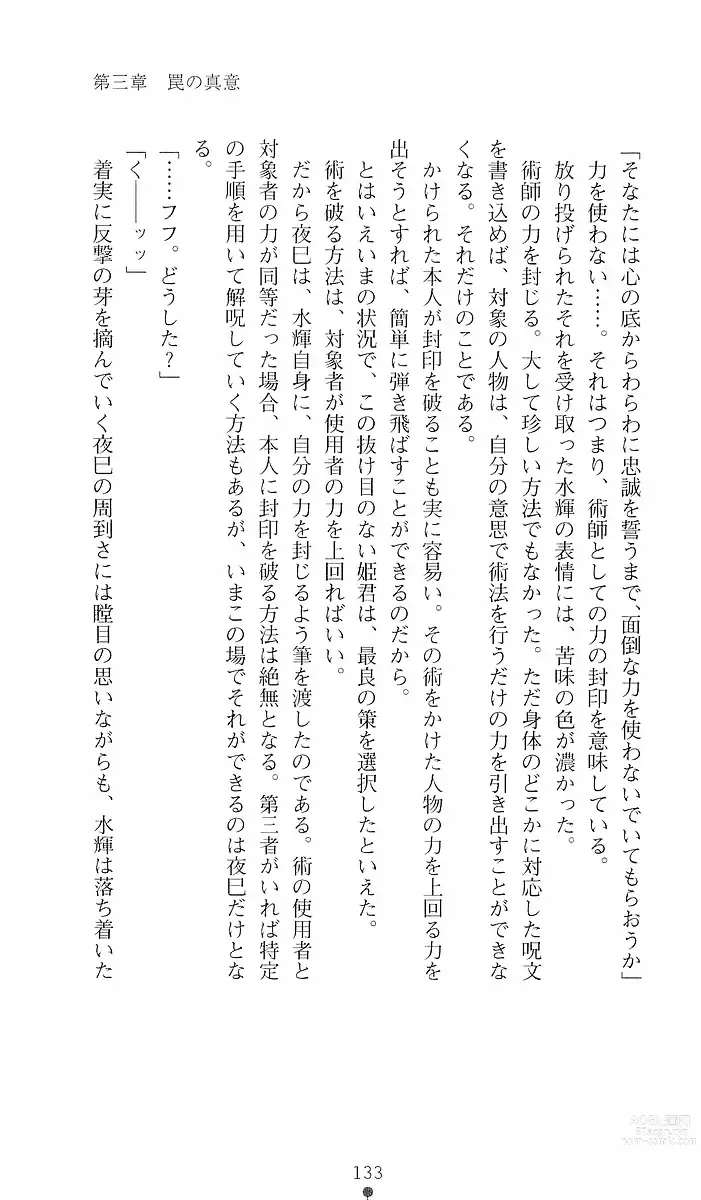 第三章　罠の真意
「そなたには心の底からわらわに忠誠を誓うまで、面倒な力を使わないでいてもらおうか」
力を使わない……。それはつまり、術師としての力の封印を意味している。
放り投げられたそれを受け取った水輝の表情には、苦味の色が濃かった。
術師の力を封じる。大して珍しい方法でもなかった。ただ身体のどこかに対応した呪文
を書き込めば、対象の人物は、自分の意思で術法を行うだけの力を引き出すことができな
くなる。それだけのことである。
かけられた本人が封印を破ることも実に容易い。その術をかけた人物の力を上回る力を
出そうとすれば、簡単に弾き飛ばすことができるのだから。
とはいえいまの状況で、この抜け目のない姫君は、最良の策を選択したといえた。
術を破る方法は、対象者が使用者の力を上回ればいい。
だから夜巳は、水輝自身に、自分の力を封じるよう筆を渡したのである。術の使用者と
対象者の力が同等だった場合、本人に封印を破る方法は絶無となる。第三者がいれば特定
の手順を用いて解呪していく方法もあるが、いまこの場でそれができるのは夜巳だけとな
る。
「……フフ。どうした？」
「く――ッッ」
着実に反撃の芽を摘んでいく夜巳の周到さには瞠目の思いながらも、水輝は落ち着いた
133